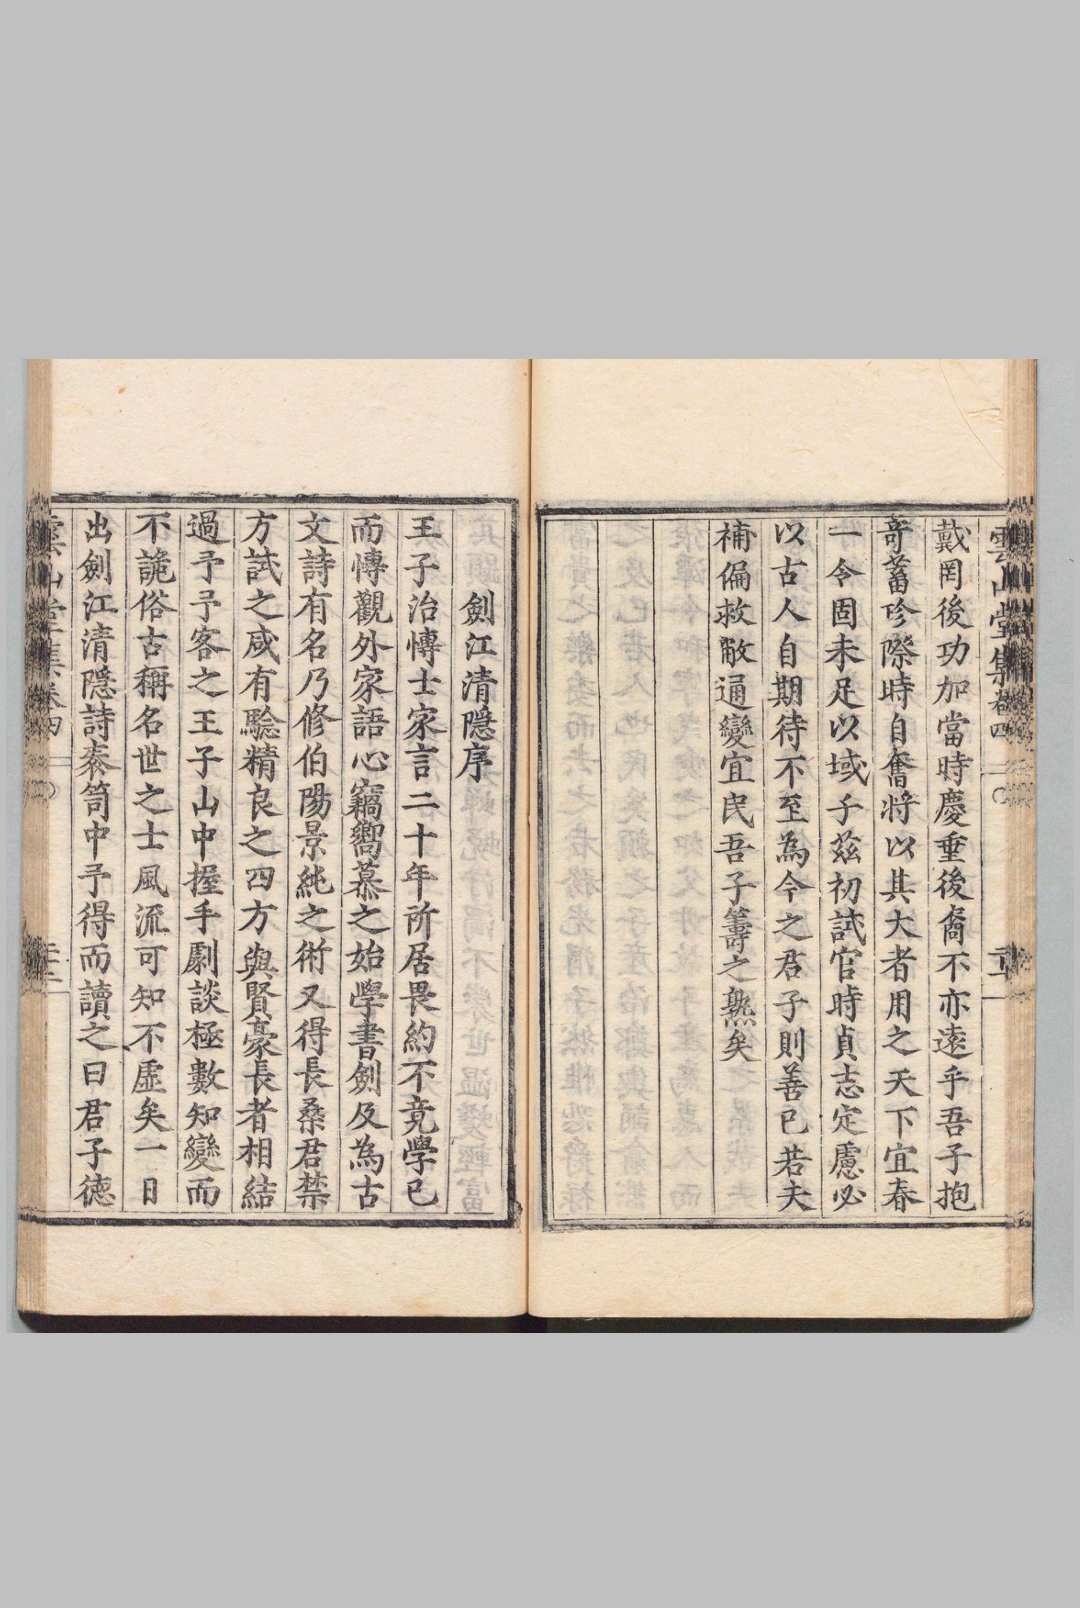 雲山堂集卷四
戴罔後功加當時慶垂後裔不亦遠乎吾子抱
奇蓄珍際時自奮將以其大者用之天下宜春
一令固未足以域子茲初試官時貞志定慮必
以古人自期待不至為今之君子則善已若夫
補偏救敝通變宜民吾子籌之熟矣
劍江清隱序
王子治博士家言二十年所居畏約不竟學已
而博觀外家語心竊嚮慕之始學書劍及為古
文詩有名乃修伯陽景純之術又得長桑君禁
方試之咸有驗精良之四方與賢豪長者相結
過予予客之王子山中握手劇談極數知變而
不詭俗古稱名世之士風流可知不虛矣一日
出劍江清隱詩袠笥中予得而讀之曰君子德
雲山堂集卷四